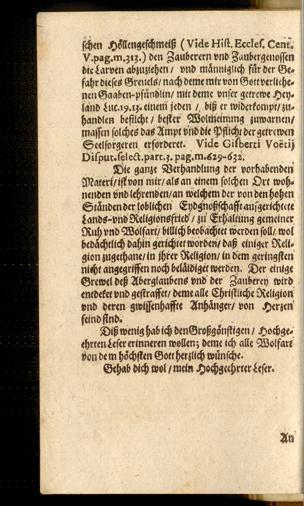 schen Höllengeschmeiß (Vide Hist. Eccles. Cent.
V. pag. m. 313.) den Zauberern vnd Zaubergenossen
die Larven abzuziehen / vnd männiglich für der Ge-
fahr dieses Grewels / nach deme mir von Gott verliche-
nen Gaaben-pfündlin / mit deme vnser getrewe Hey-
land Luc. 19. 13. einem jeden / biß er widerkompt / zu-
handlen befilcht / bester Wolmeinung zuwarnen /
massen solches das Ampt vnd die Pflicht der getrewen
Seelsorgeren erforderet. Vide Gisberti Voëtij
Disput. select. part. 3. pag. m. 629-632.
Die gantze Verhandlung der vorhabenden
Materi / ist von mir / als an einem solchen Ort woh-
nenden vnd lehrenden / an welchem der von den hohen
Ständen der loblichen Eydgnoßschafft aufgerichtete
Lands- vnd Religionsfried / zu Erhaltung gemeiner
Ruh vnd Wolfart / billich beobachtet werden soll / wol
bedächtlich dahin gerichtet worden / daß einiger Reli-
gion zugethane / in jhrer Religion / in dem geringsten
nicht angegriffen noch beläidiget werden. Der einige
Grewel deß Aberglaubens vnd der Zauberey wird
entdeket vnd gestraffet / deme alle Christliche Religion
vnd deren gwissenhaffte Anhänger / von Herzen
feind sind.
Diß wenig hab ich den Großgönstigen / Hochge-
ehrten Leser erinneren wollen; deme ich alle Wolfart
von dem höchsten Gott herzlich wünsche.
Gehab dich wol / mein Hochgeehrter Leser.
An